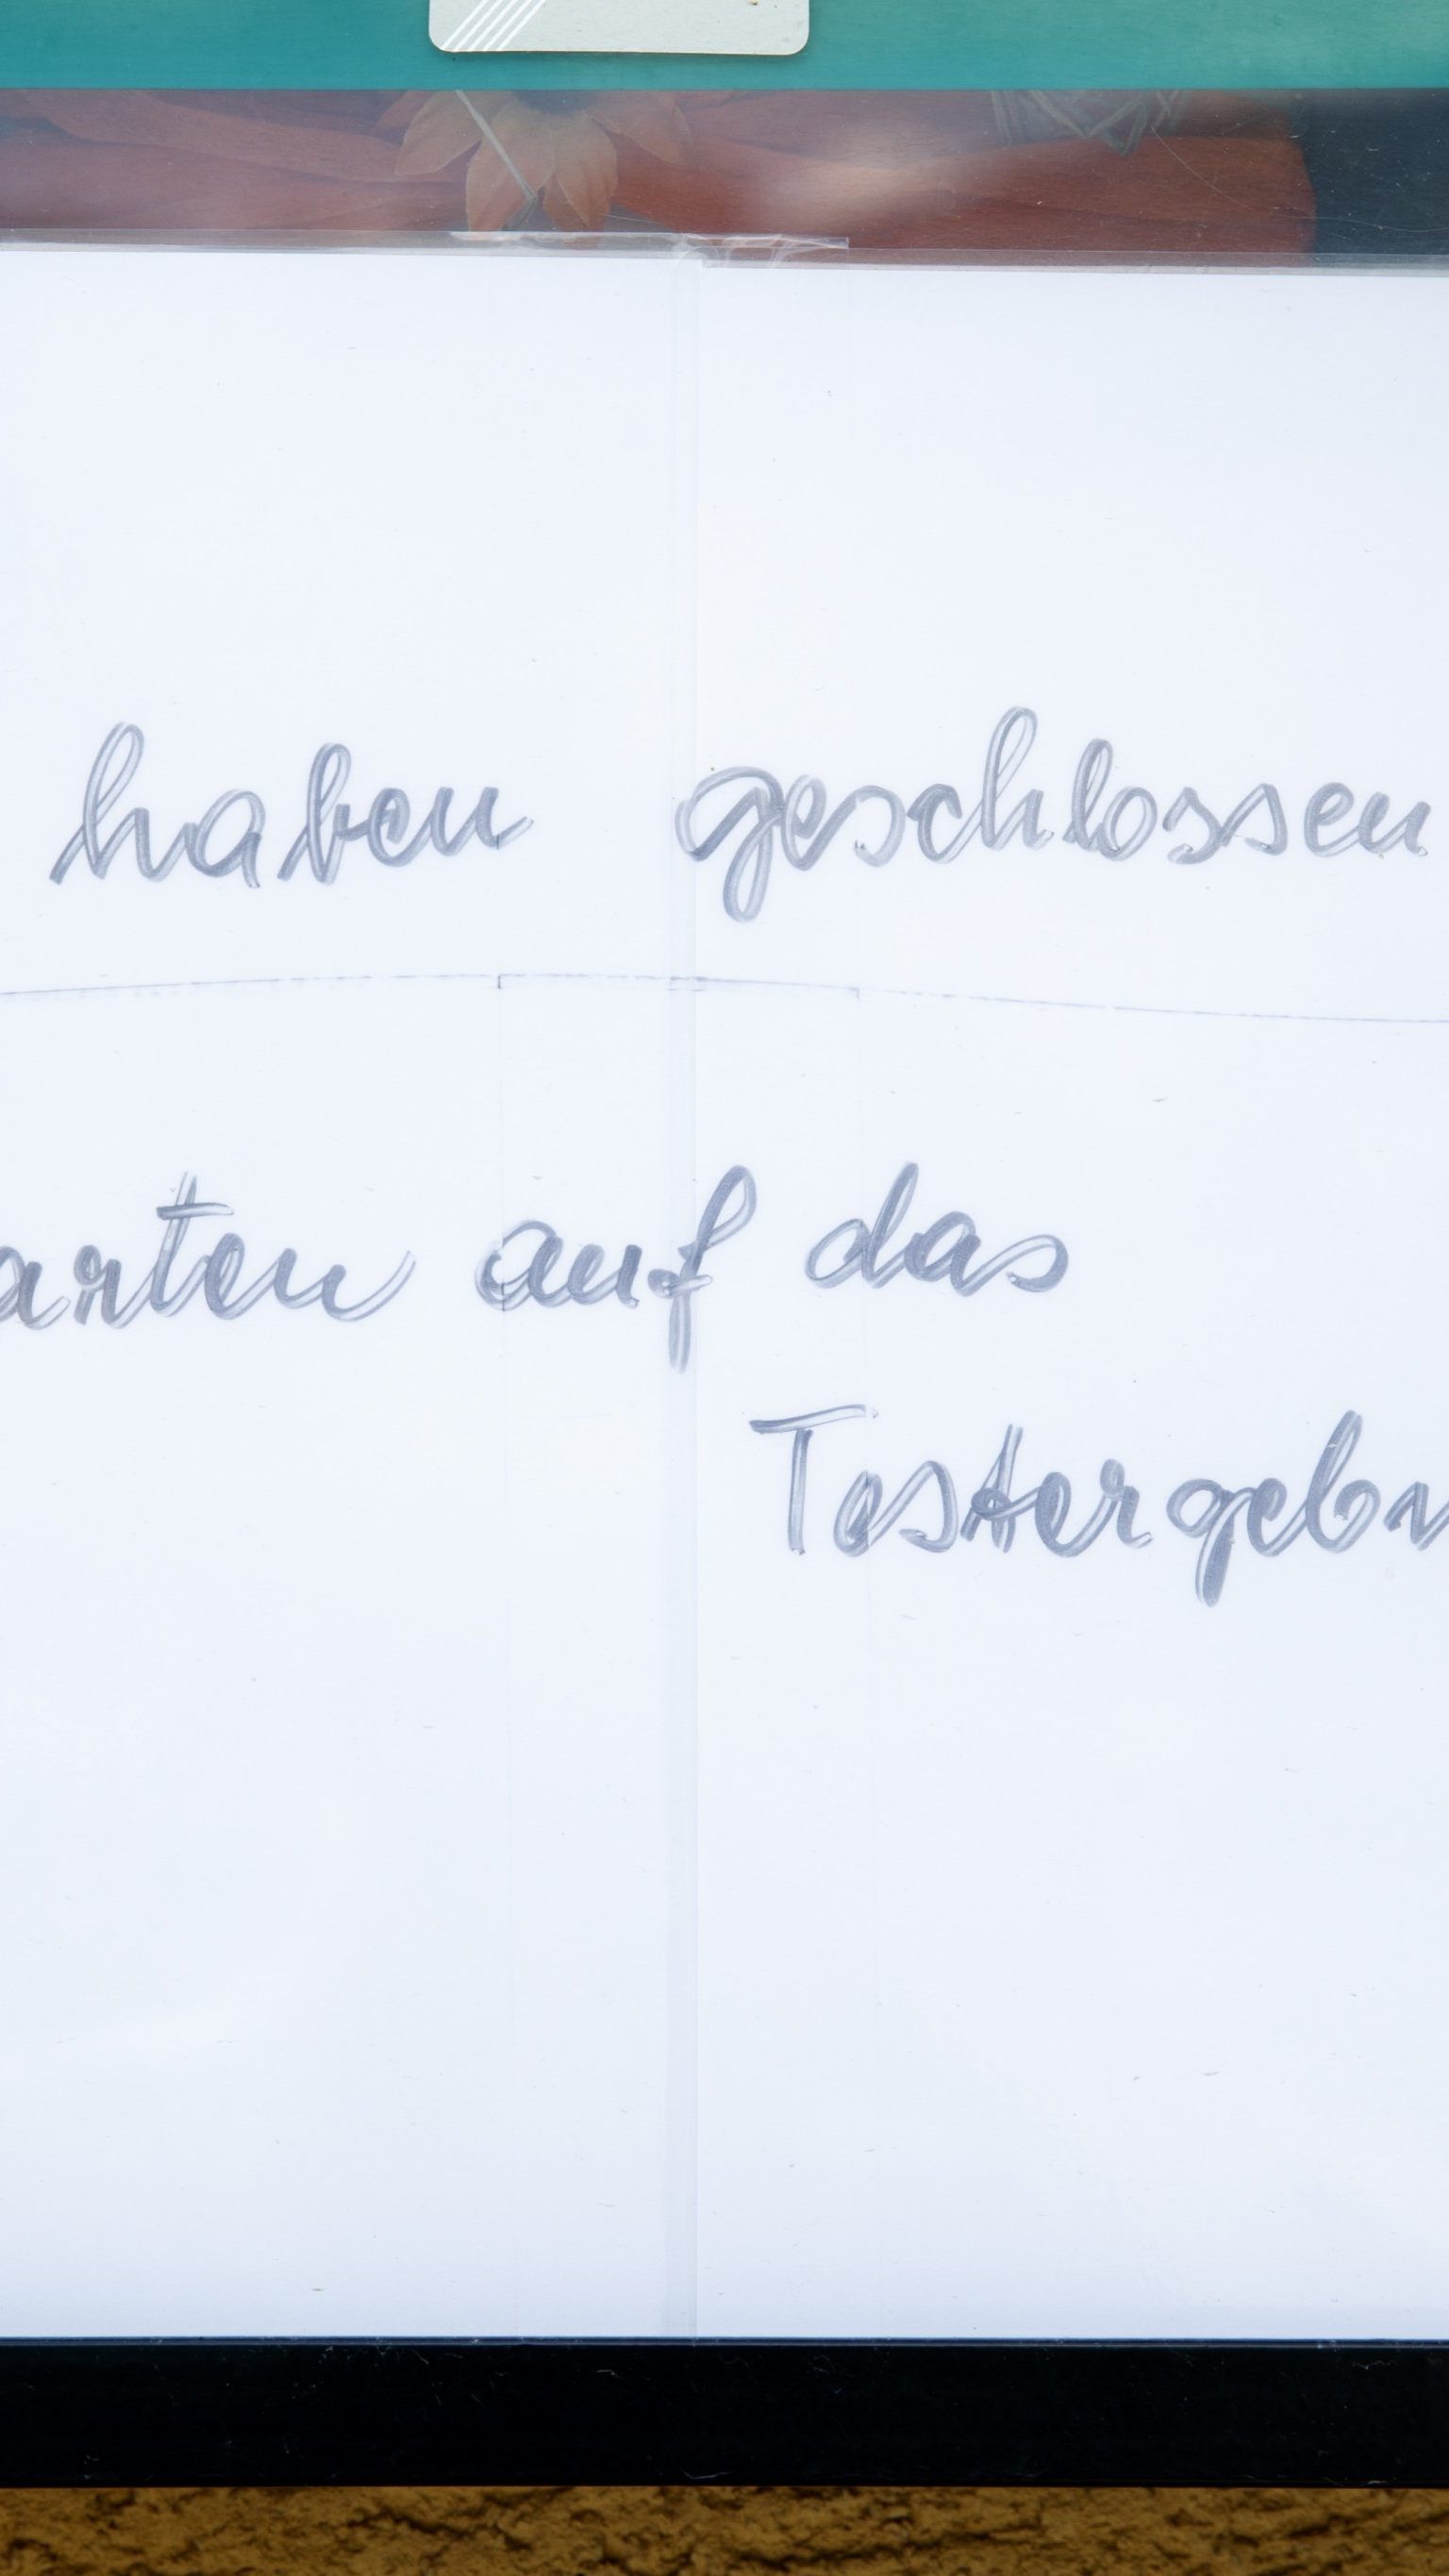 haben geschlossen
arten auf das
Testergebn